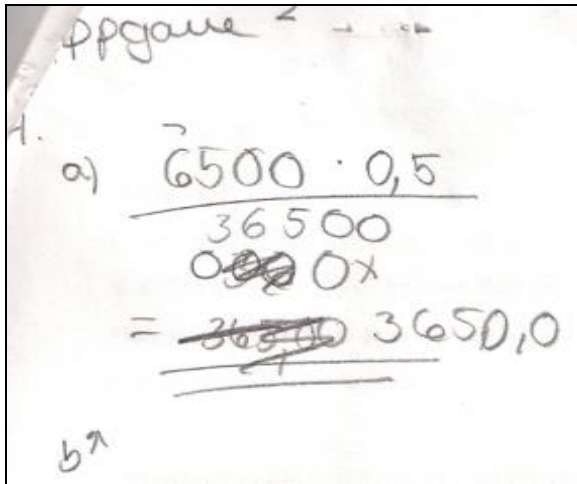 oppgave 2
1.
a) 6500 · 0,5
36500
0x
= 3650,0
b)